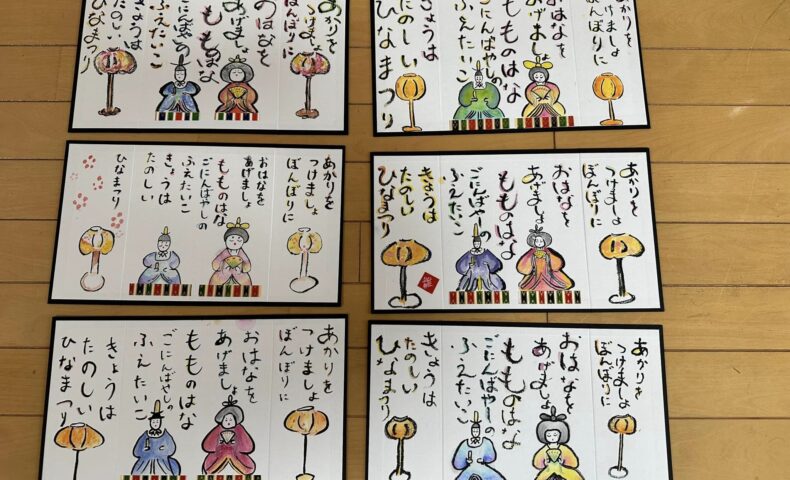 あかりを
つけましょ
ぼんぼりに
おはなを
あげましょ
もものはな
ごにんばやしの
ふえたいこ
きょうは
たのしい
ひなまつり
あかりを
つけましょ
ぼんぼりに
おはなを
あげましょ
もものはな
ごにんばやしの
ふえたいこ
きょうは
たのしい
ひなまつり
あかりを
つけましょ
ぼんぼりに
おはなを
あげましょ
もものはな
ごにんばやしの
ふえたいこ
きょうは
たのしい
ひなまつり
あかりを
つけましょ
ぼんぼりに
おはなを
あげましょ
もものはな
ごにんばやしの
ふえたいこ
きょうは
たのしい
ひなまつり
あかりを
つけましょ
ぼんぼりに
おはなを
あげましょ
もものはな
ごにんばやしの
ふえたいこ
きょうは
たのしい
ひなまつり
あかりを
つけましょ
ぼんぼりに
おはなを
あげましょ
もものはな
ごにんばやしの
ふえたいこ
きょうは
たのしい
ひなまつり